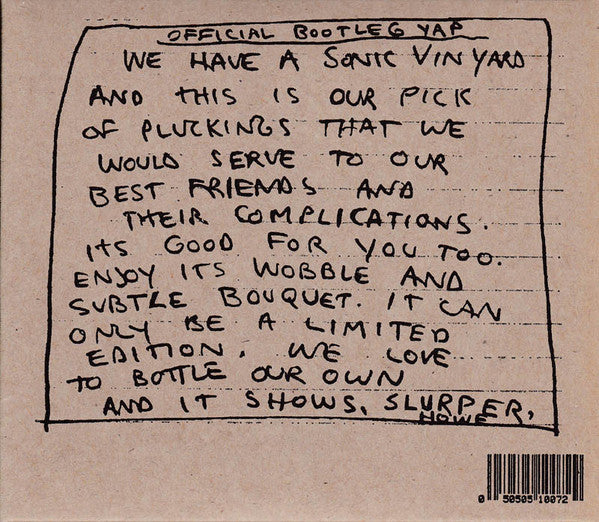 OFFICIAL BOOTLEG YAP
WE HAVE A SONIC VINYARD
AND THIS IS OUR PICK
OF PLUCKINGS THAT WE
WOULD SERVE TO OUR
BEST FRIENDS AND
THEIR COMPLICATIONS.
ITS GOOD FOR YOU TOO.
ENJOY ITS WOBBLE AND
SUBTLE BOUQUET. IT CAN
ONLY BE A LIMITED
EDITION. WE LOVE
TO BOTTLE OUR OWN
AND IT SHOWS. SLURPER,
HOWE
0 50505 10072